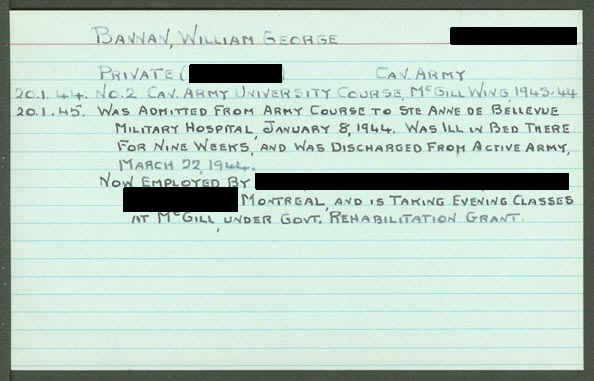 BANNAN, WILLIAM GEORGE
PRIVATE ( ) CAN. ARMY
20.1.44. NO.2 CAN. ARMY UNIVERSITY COURSE, MCGILL WING, 1943-44
20.1.45. WAS ADMITTED FROM ARMY COURSE TO STE ANNE DE BELLEVUE
MILITARY HOSPITAL, JANUARY 8, 1944. WAS ILL IN BED THERE
FOR NINE WEEKS, AND WAS DISCHARGED FROM ACTIVE ARMY,
MARCH 22, 1944.
NOW EMPLOYED BY
MONTREAL, AND IS TAKING EVENING CLASSES
AT MCGILL, UNDER GOVT. REHABILITATION GRANT.